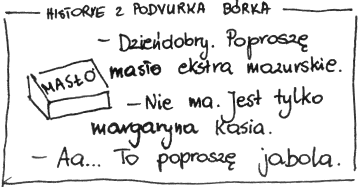 HISTORYE Z PODVURKA BÓRKA
- Dzieńdobry. Poproszę
masło ekstra mazurskie.
MASŁO
- Nie ma. Jest tylko
margaryna Kasia.
- Aa... To poproszę jabola.